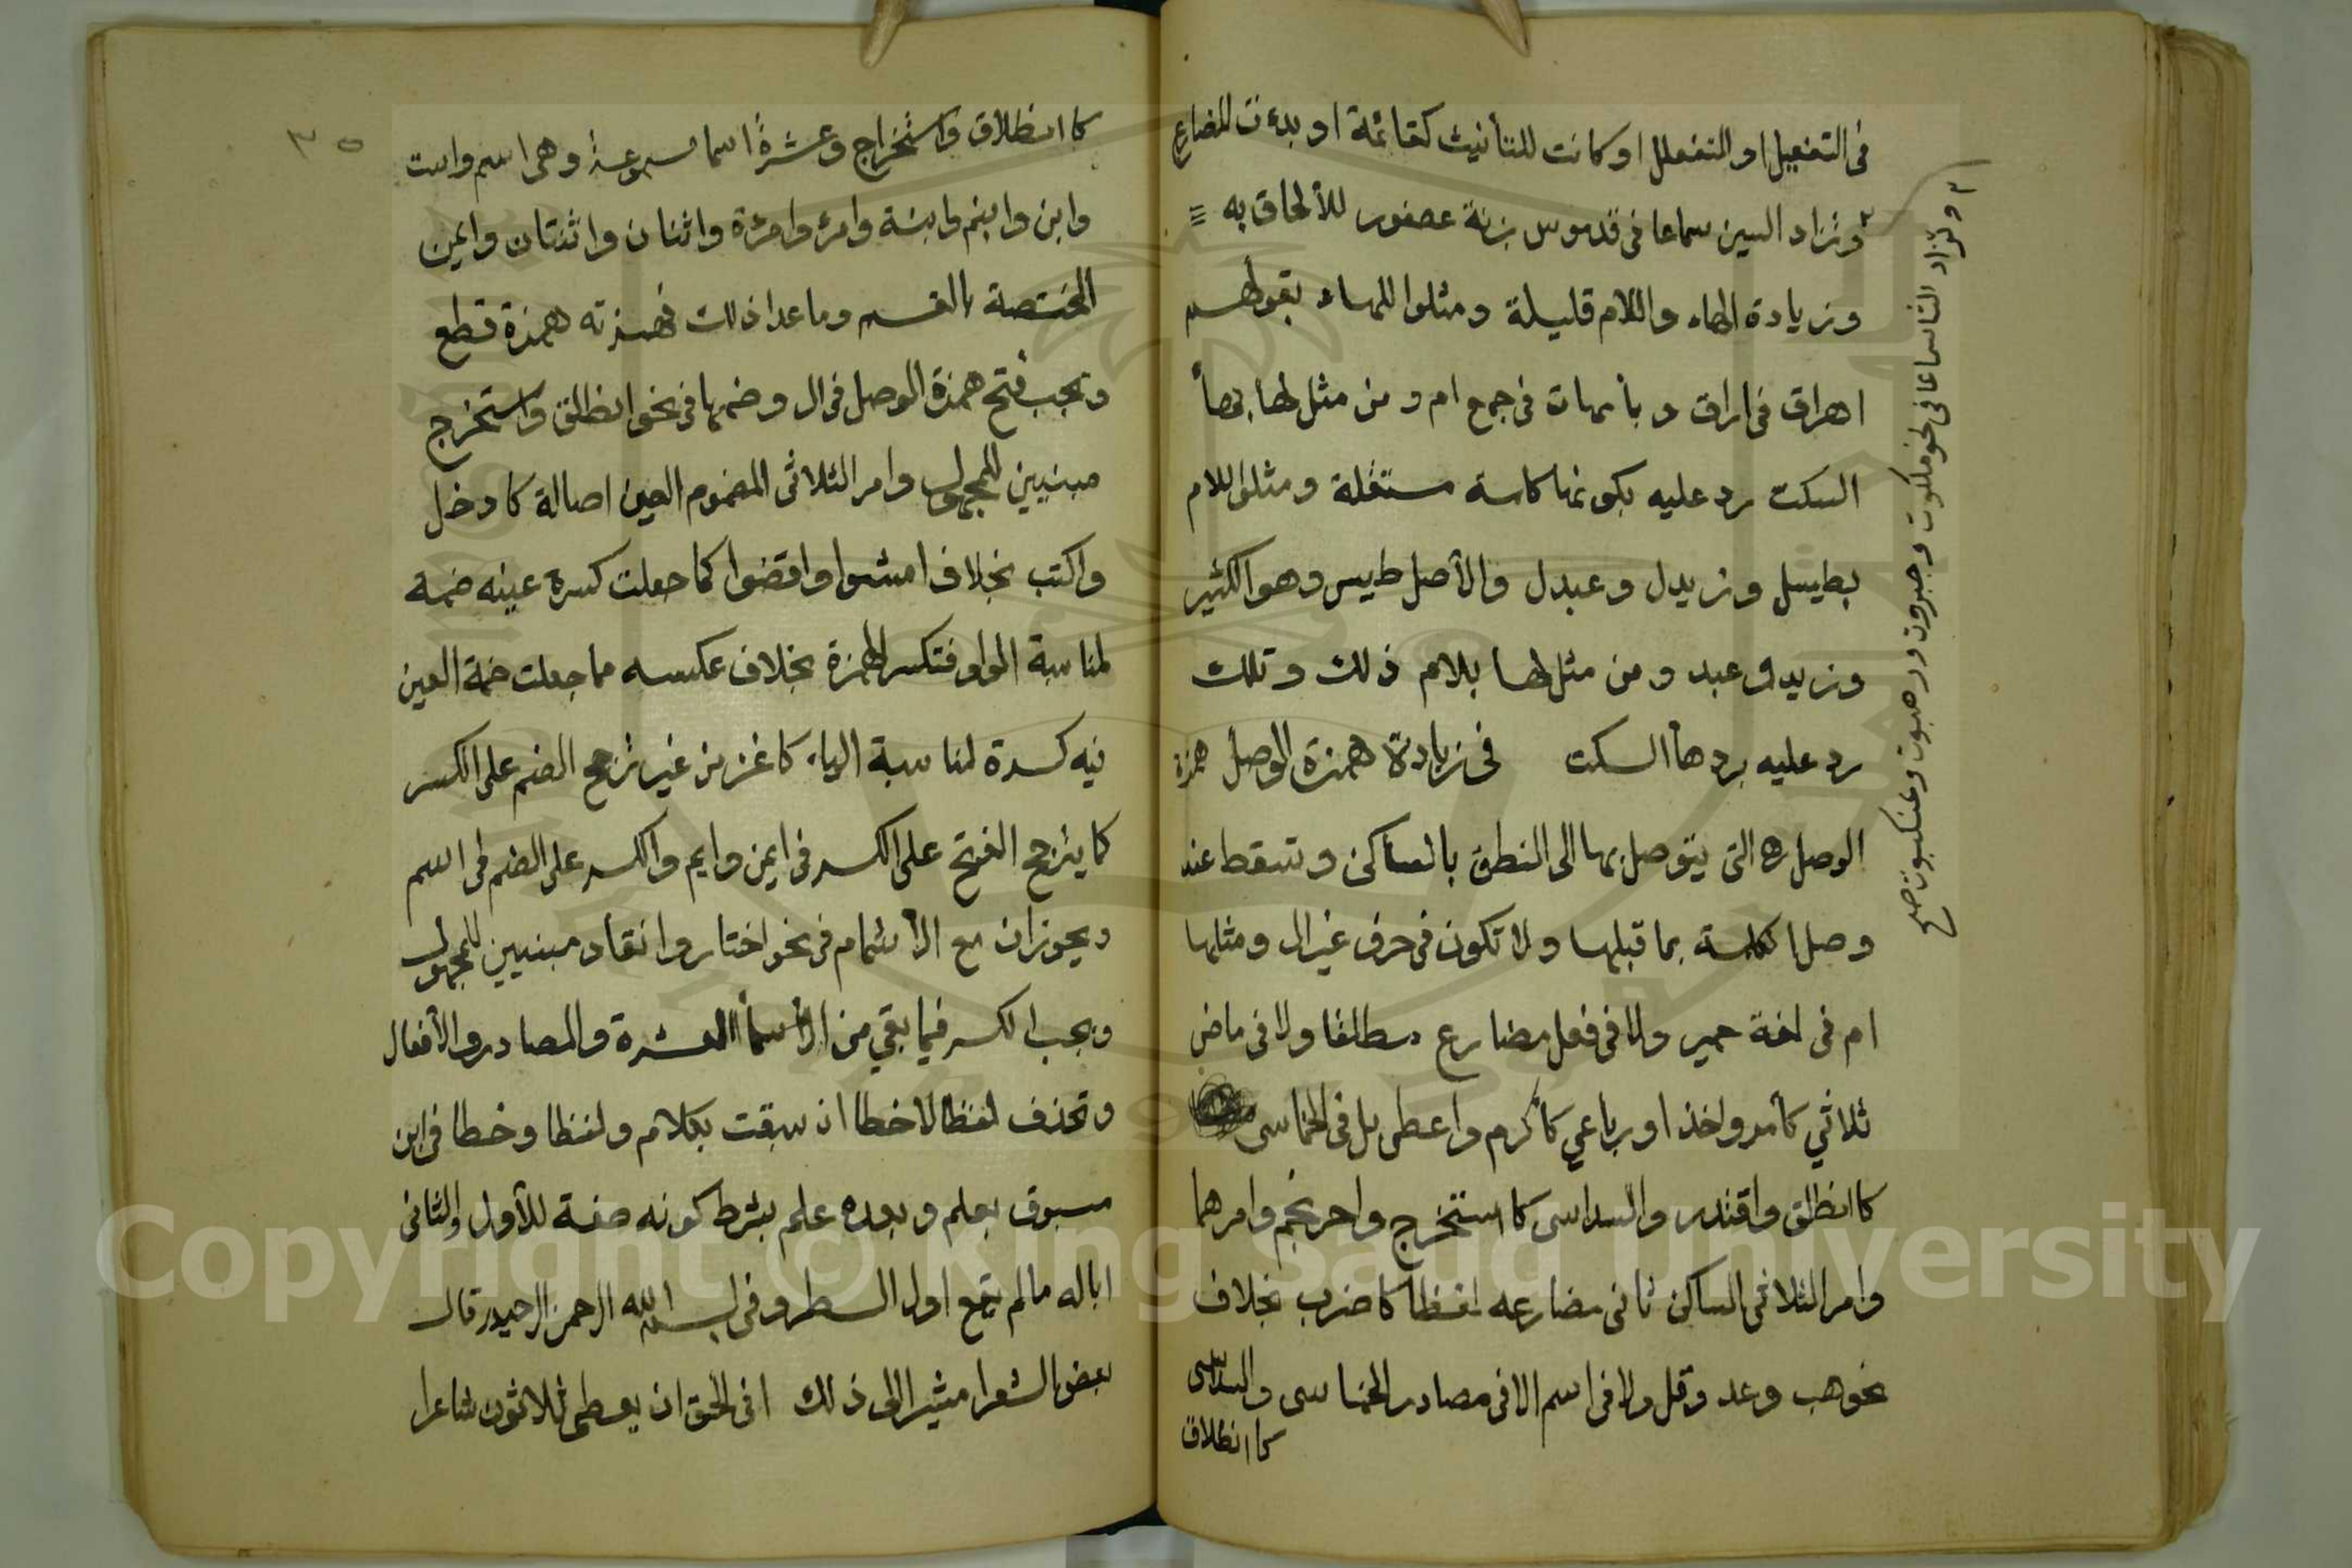 فى التفعيل او التفعلل او كانت للتأنيث كقائمة او بدءت المضارع
٢ وتزاد السين سماعا فى قدموس بزنة عصفور للألحاق به
وزيادة الهاء واللام قليلة ومثلوا للهاء بقولهم
اهراق فى اراق وبأمهات فى جمع ام ومن مثل لها بهاأ
السكت رد عليه بكونها كلمة مستقلة ومثلوا اللام
بطيسل وزيدل وعبدل والأصل طيس وهو الكثير
وزيد وعبد ومن مثل لها بلام ذلك وتلك
رد عليه برد هأ السكت فى زيادة همزة الوصل همزة
الوصل ه التى يتوصل بها الى النطق بالساكن وتسقط عند
وصل الكلمة بما قبلها ولا تكون فى حرف غير ال ومثلها
ام فى لغة حمير ولا فى فعل مضارع مطلقا ولا فى ماض
ثلاثي كأمر واخذ او رباعي كأكرم واعطى بل فى الخماسى
كاانطلق واقتدر والسداسى كا استخرج واحرنجم وامرهما
وامر الثلاثى الساكن ثانى مضارعه لفظا كاضرب بخلاف
نحو هب وعد وقل ولا فى اسم الا فى مصادر الخماسى والسداسى
كا انطلاق
٢ وتزاد التا سماعا فى نحو ملكوت وجبروت ورهبوت وعنكبوت صح
٣٥
كا انطلاق واستخراج وعشرة اسما مسموعة وهى اسم واست
وابن وابنم وابنة وامرء وامرءة واثنان واثنتان وايمن
المختصة بالقسم وما عدا ذلك فهمزته همزة قطع
ويجب فتح همزة الوصل فى ال وضمها فى نحو انطلق واستخرج
مبنيين للمجهول وامر الثلاثى المضموم العين اصالة كا دخل
واكتب بخلاف امشوا واقضوا كما جعلت كسرة عينه ضمة
لمناسبة الواو فتكسر الهمزة بخلاف عكسه مما جعلت ضمة العين
فيه كسرة لمناسبة الياء كا غزى من غير ترجح الضم على الكسر
كما يترجح الفتح على الكسر فى ايمن وايم والكسر على الضم فى اسم
ويجوزان مع الأشمام فى نحو اختار وانقاد مبنيين للمجهول
ويجب الكسر فيما بقي من الأسمأ العشرة والمصادر والأفعال
وتحذف لفظا لا خطا ان سبقت بكلام ولفظا وخطا فى ابن
مسبوق بعلم وبعده علم بشرط كونه صفة للأول والثانى
اباله مالم يقع اول السطر وفى بسم الله الرحمن الرحيم قال
بعض الشعرا مشيرا الى ذلك افى الحق ان يعطى ثلاثون شاعرا
Copyright © King Saud University